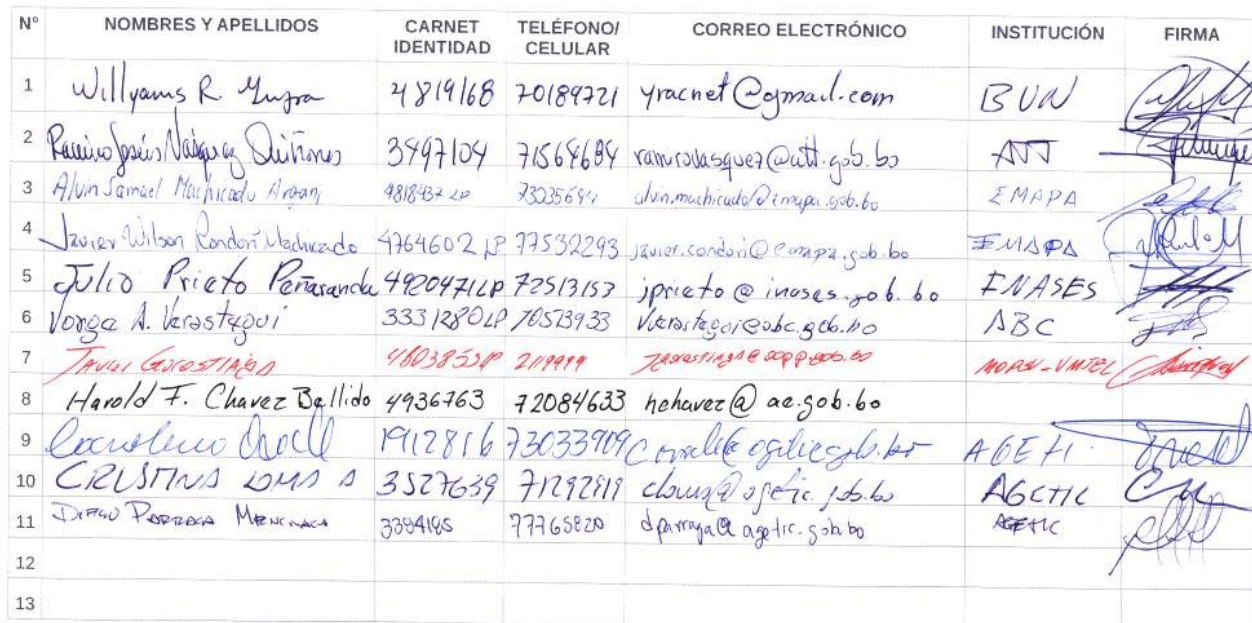 N° NOMBRES Y APELLIDOS CARNET IDENTIDAD TELÉFONO/ CELULAR CORREO ELECTRÓNICO INSTITUCIÓN FIRMA
1 Willyams R. 4819168 70189721 yracnet@gmail.com BUN
2 Ramiro Jesús Vásquez Quiñones 3497104 71564684 ramirovasquez@att.gob.bo ATT
3 Alvin Samael Machicado 4818437 LP alvin.machicado@emapa.gob.bo EMAPA
4 Javier Wilson Condori Machicado 4764602 LP 77532293 javier.condori@emapa.gob.bo EMAPA
5 Julio Prieto Peñaranda 4920471LP 72513153 jprieto @ inases.gob.bo INASES
6 A. Verastegui 3331280LP 70523933 ABC
7 Javier Gorostiaga 2119999 MOPSV-VMTEL
8 Harold F. Chavez Bellido 4936763 72084633 hchavez@ ae.gob.bo
9 1912816 73033909 AGETIC
10 CRISTINA LOMA A 3527639 71292919 AGETIC
11 DIEGO PARRAGA 3384185 77765820 dparraga@ agetic.gob.bo AGETIC
12
13